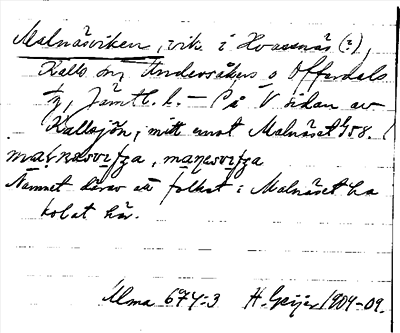 Malnäsviken, vik i Kvarnnäs (?),
Kalls sn, Undersåkers o. Offerdals
tg, Jämtl. l. – På V sidan av
Kallsjön, mitt emot Malnäset 458.
Namnet därav att folket i Malnäset ha
kolat här.
Ulma 674:3 H. Geijer 1904-09.